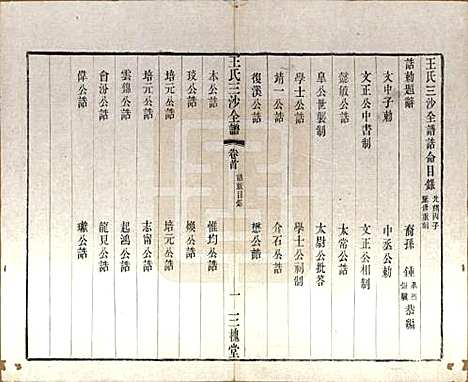 王氏三沙全譜誥命目錄 光緒丙子 重修重刻
誥勅題辭 裔孫 鍾 恭編
文中子勅 中丞公勅
文正公中書制 文正公相制
懿敏公誥 太常公誥
阜公世襲制 太尉公批答
學士公誥 學士公祠制
靖一公誥 介石公誥
復溪公誥 懋公誥
王氏三沙全譜 卷首 誥勅目錄 一 三槐堂
本公誥 惟均公誥
琰公誥 煥公誥
培元公誥 培元公誥
培元公誥 志甯公誥
雲錦公誥 起鴻公誥
會汾公誥 龍見公誥
偉公誥 瓛公誥